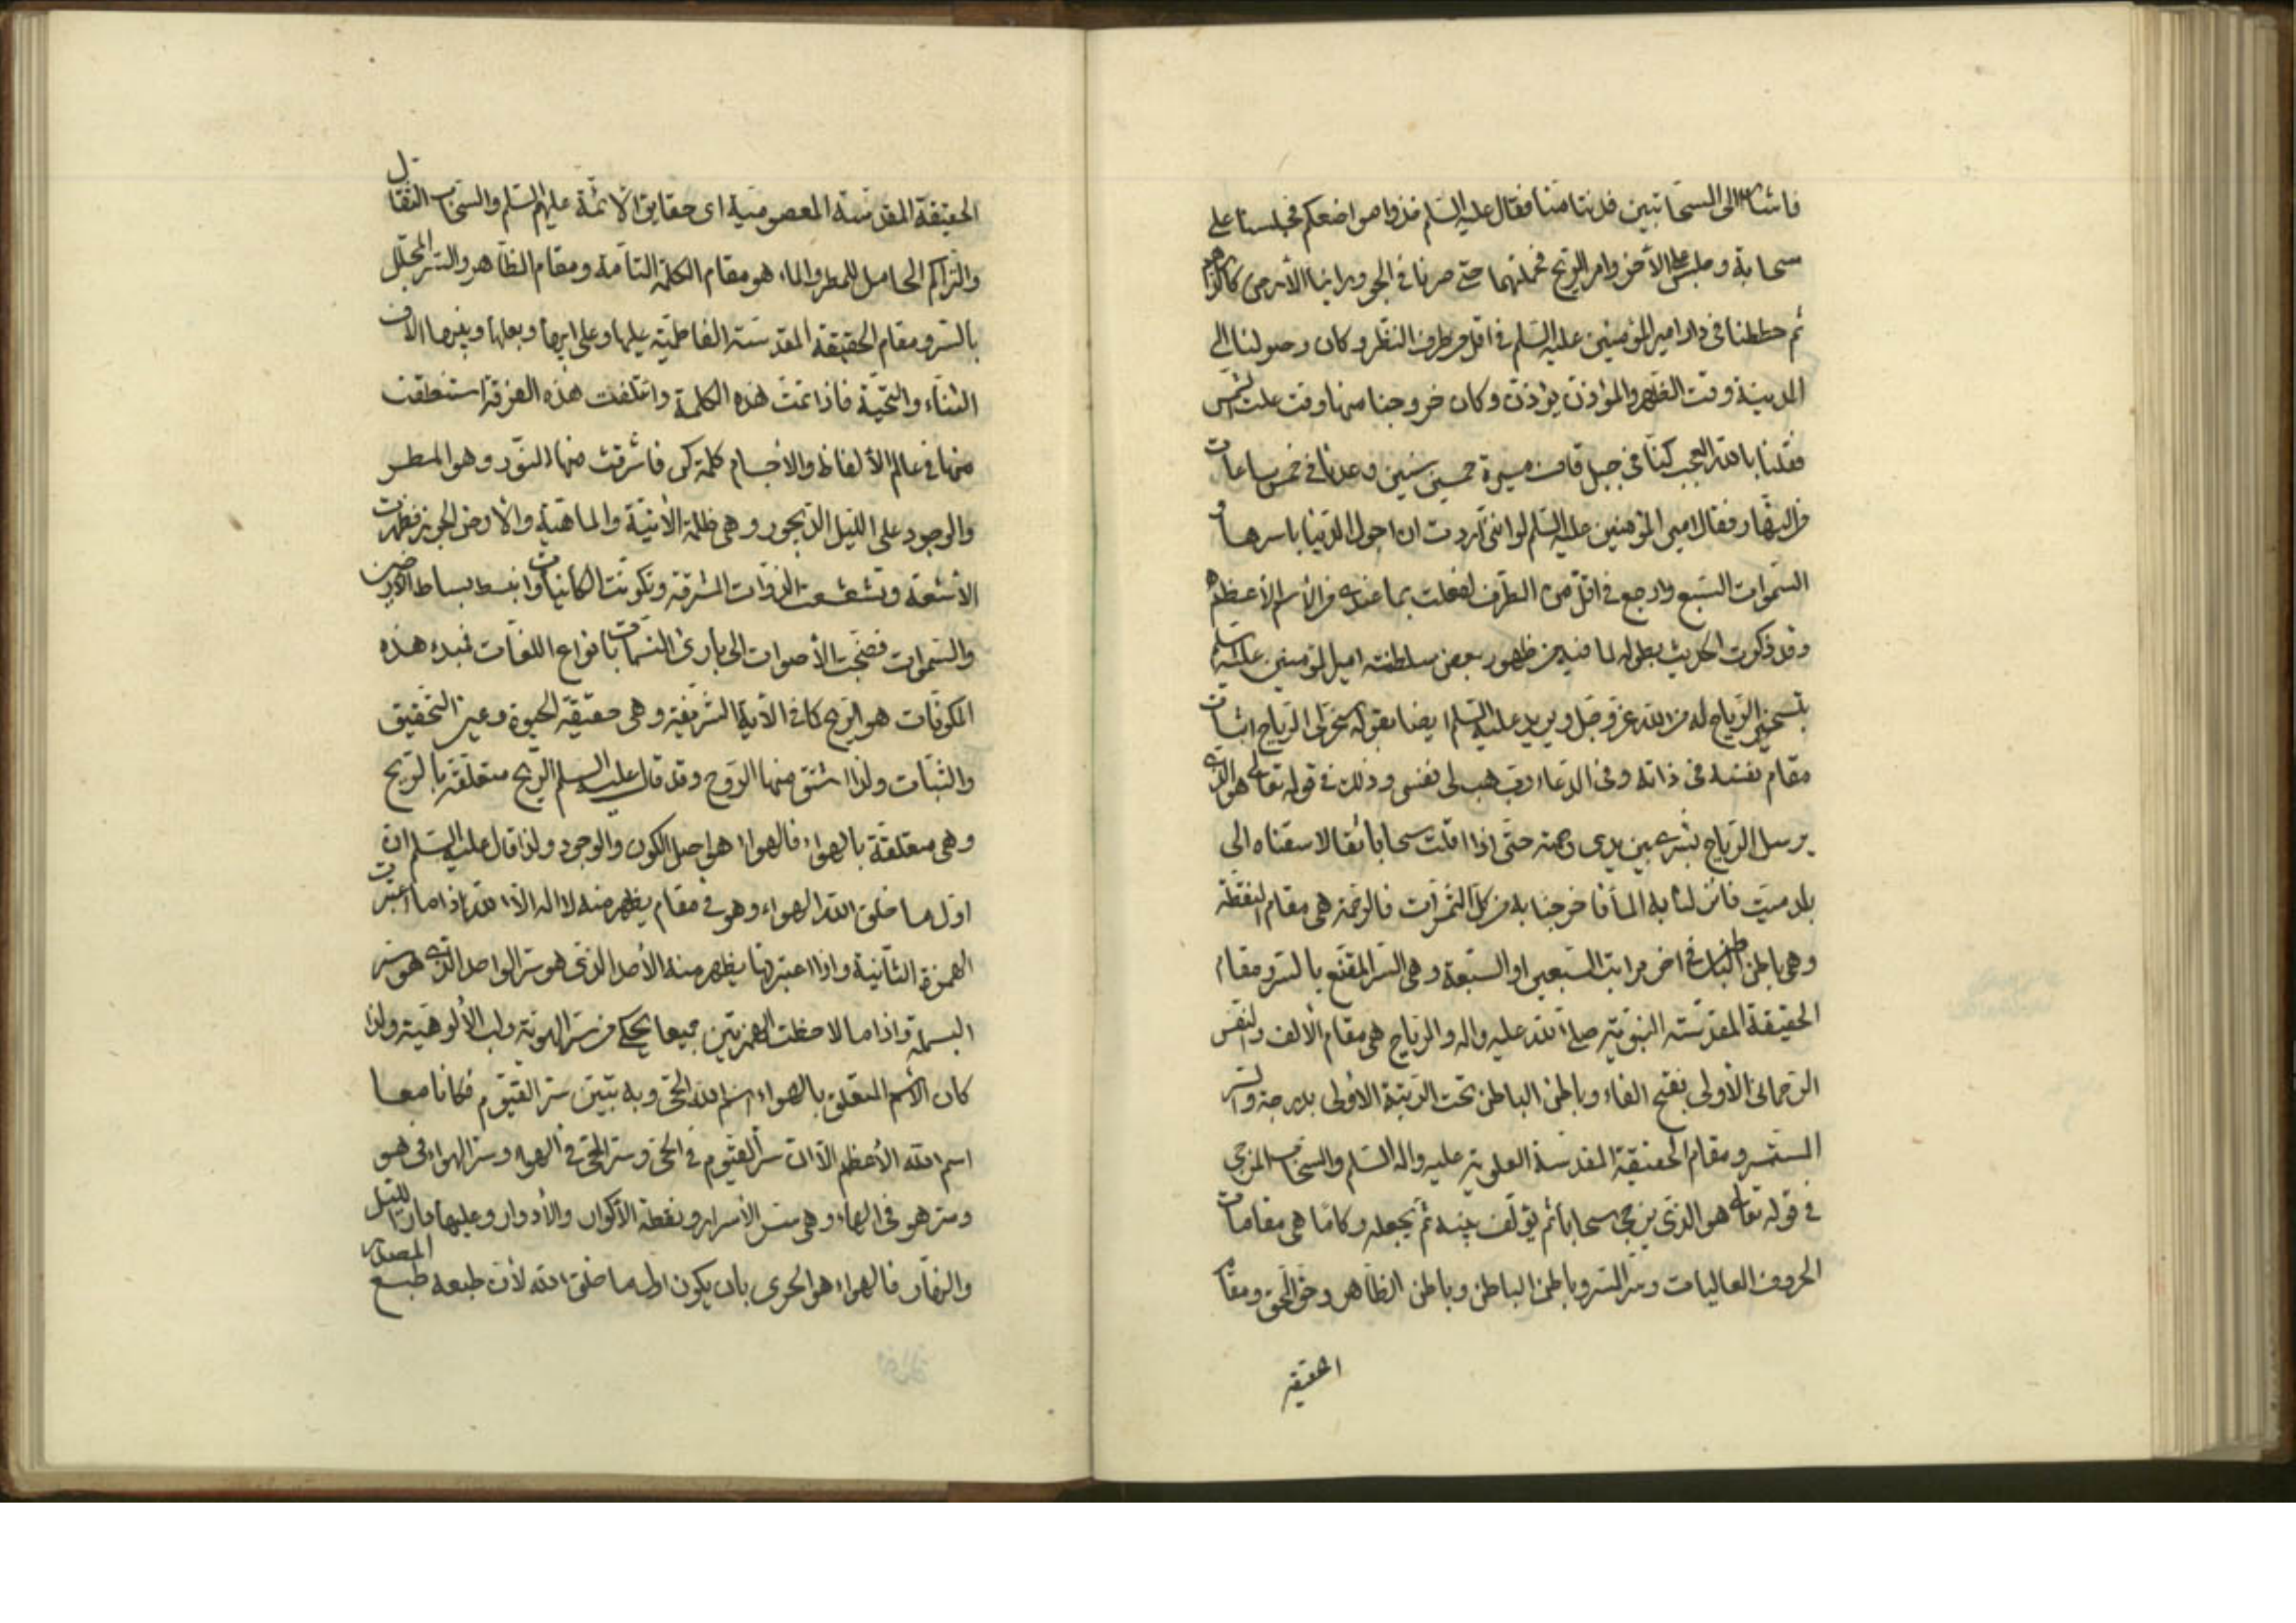 فاشار الى السحابتين فدنتا منا فقال عليه السلم خذوا مواضعكم فجلسنا على
سحابة وجلس على الأخرى وامر الريح فحملتهما حتى صرنا في الجو وراينا الأرض كالدرهم
ثم حططنا في دار امير المؤمنين عليه السلم في اقل من طرف النظر وكان وصولنا الى
المدينة وقت الظهر والمؤذن يؤذن وكان خروجنا منها وقت علت الشمس
فقلنا بالله العجب كنا في جبل قاف مسيرة خمسين سنين وعدنا في خمس ساعات
من النهار فقال امير المؤمنين عليه السلم لو انني اردت ان اجول الدنيا باسرها و
السموات السبع وارجع في اقل من الطرف لفعلت بما عندي من الأسم الأعظم
وقد ذكرت الحديث بطوله لما فيه من ظهور بعض سلطنته امير المؤمنين عليه السلم
بتسخير الرياح له من الله عز وجل ويريد عليه السلم ايضا بقوله سخر لى الرياح اثبات
مقام نفسه في ذاته وفي الدعاء رب هب لى نفسى وذلك في قوله تعالى هو الذي
يرسل الرياح بشرى بين يدى رحمته حتى اذا اقلت سحابا ثقالا سقناه الى
بلد ميت فانزلنا به الماء فاخرجنا به من كل الثمرات فالرحمة هي مقام النقطة
وهي باطن الباطن في اخر مراتب السبعين او السبعة وهي السر المقنع بالسر ومقام
الحقيقة المقدسته النبوية صلى الله عليه واله والرياح هي مقام الألف والنفس
الرحمانى الأولى بفتح الفاء وباطن الباطن تحت الرتبة الاولى بدرجة والسر
المستسر ومقام الحقيقة المقدسة العلوية عليه واله السلم والسحاب المزجى
في قوله تعالى هو الذي يزجى سحابا ثم يؤلف بينه ثم يجعله ركاما هي مقامات
الحروف العاليات وسر السر وباطن الباطن وباطن الظاهر وحق الحق ومقام
الحقيقة
الحقيقة المقدسته المعصومية اى حقايق الأئمة عليهم السلم والسحاب الثقال
والتراكم الحامل للمطر والماء هو مقام الكلمة التامة ومقام الظاهر والسر المجلل
بالسر ومقام الحقيقة المقدسته الفاطمية عليها وعلى ابيها وبعلها وبنيها الاف
الثناء والتحية فاذا تمت هذه الكلمة وائتلفت هذه الفرقة استنطقت
منها في عالم الألفاظ والاجسام كلمة كن فاشرقت منها النور وهو المطر
والوجود على الليل الديجور وهي ظلمة الأنية والماهية والأرض الجرز فظهرت
الأشعة وتشعشعت الذوات المشرقة وتكونت الكائنات وانبسط بساط الأرضين
والسموات فضجت الأصوات الى بارئ النسمات بانواع اللغات فمبدء هذه
المكونات هو الريح كما في الأية الشريفة وهي حقيقة الحيوة وعين التحقيق
والثبات ولذا اشتق منها الروح وقد قال عليه السلم الريح متعلقة بالريح
وهي متعلقة بالهواء فالهواء هو اصل الكون والوجود ولذا قال عليه السلم ان
اول ما خلق الله الهواء وهو في مقام يظهر منه لا اله الا الله اذا ما اعتبرت
الهمزة الثانية واذا اعتبرتها يظهر منه الأحد الذى هو سر الواحد الذى هو سر
البسملة واذا ما لاحظت الهمزتين جميعا يحكى من سر الهوية ولب الألوهية ولذا
كان الأسم المتعلق بالهواء اسم الله الحى وبه تبين سر القيوم فكانا معا
اسم الله الأعظم الا ان سر القيوم في الحى وسر الحى في الهواء وسر الهواء في هو
وسر هو في الهاء وهي سر الأسرار ونقطة الأكوان والأدوار وعليها مدار الليل
والنهار فالهواء هو الحرى بان يكون اول ما خلق الله لأن طبعه طبع المصدر